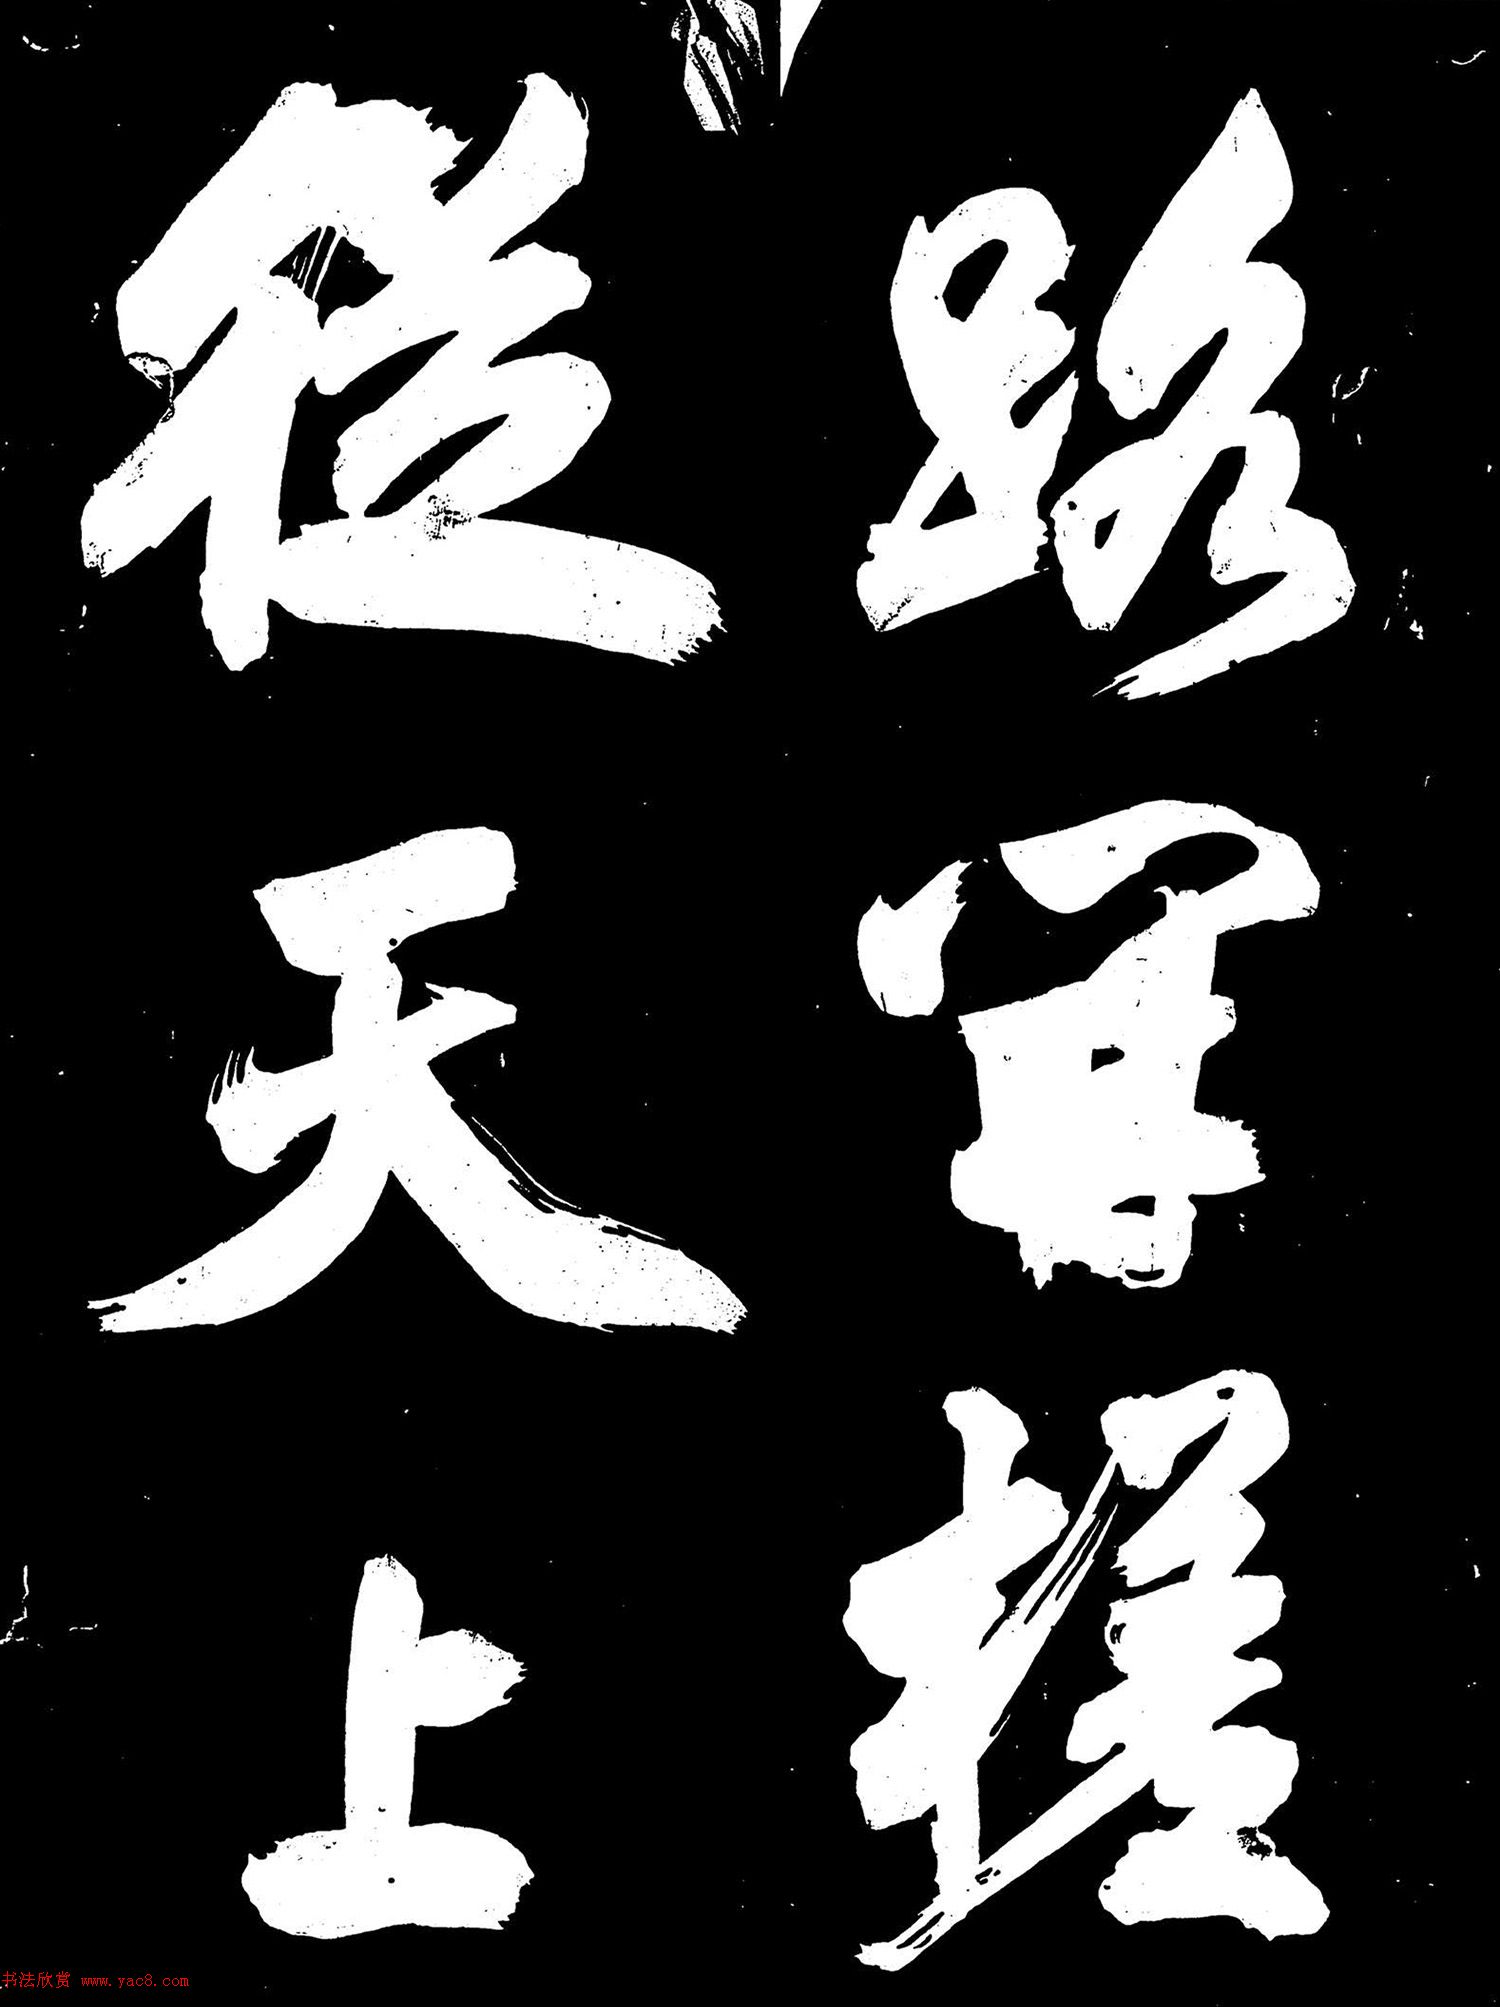 路軍
從天上
书法欣赏 www.yac8.com